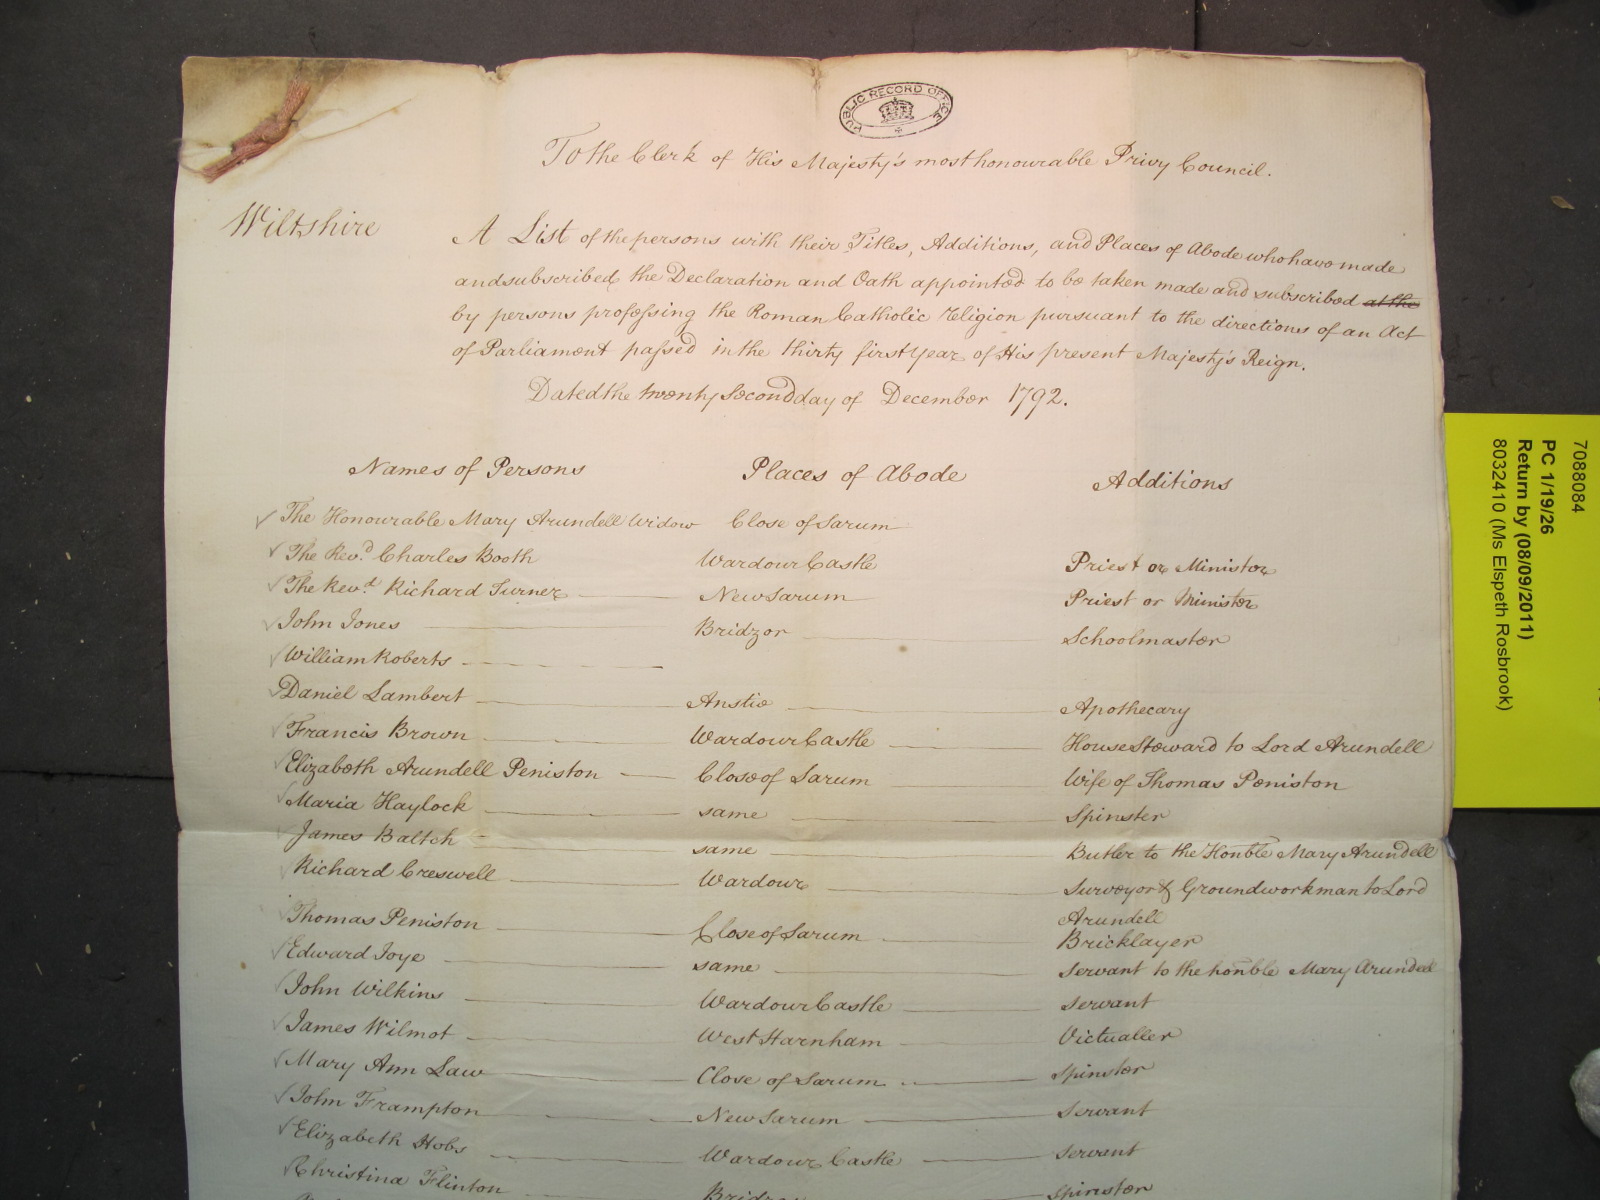 PUBLIC RECORD OFFICE
To the Clerk of His Majesty's most honourable Privy Council.
Wiltshire
A List of the persons with their Titles, Additions, and Places of Abode who have made
and subscribed the Declaration and Oath appointed to be taken made and subscribed at the
by persons professing the Roman Catholic Religion pursuant to the directions of an Act
of Parliament passed in the thirty first Year of His present Majesty's Reign.
Dated the twenty Second day of December 1792.
Names of Persons Places of Abode Additions
The Honourable Mary Arundell Widow Close of Sarum
The Revd. Charles Booth Wardour Castle Priest or Minister
The Revd. Richard Turner New Sarum Priest or Minister
John Jones Bridzor Schoolmaster
William Roberts
Daniel Lambert Anstie Apothecary
Francis Brown Wardour Castle House Steward to Lord Arundell
Elizabeth Arundell Peniston Close of Sarum Wife of Thomas Peniston
Maria Haylock same Spinster
James Baltch same Butler to the Honble Mary Arundell
Richard Creswell Wardour Surveyor & Groundworkman to Lord
Arundell
Thomas Peniston Close of Sarum Bricklayer
Edward Joye same Servant to the honble Mary Arundell
John Wilkins Wardour Castle Servant
James Wilmot West Harnham Victualler
Mary Ann Law Close of Sarum Spinster
John Frampton New Sarum Servant
Elizabeth Hobs Wardour Castle Servant
Christina Flinton Bridzor Spinster
7088084
PC 1/19/26
Return by (08/09/2011)
8032410 (Ms Elspeth Rosbrook)